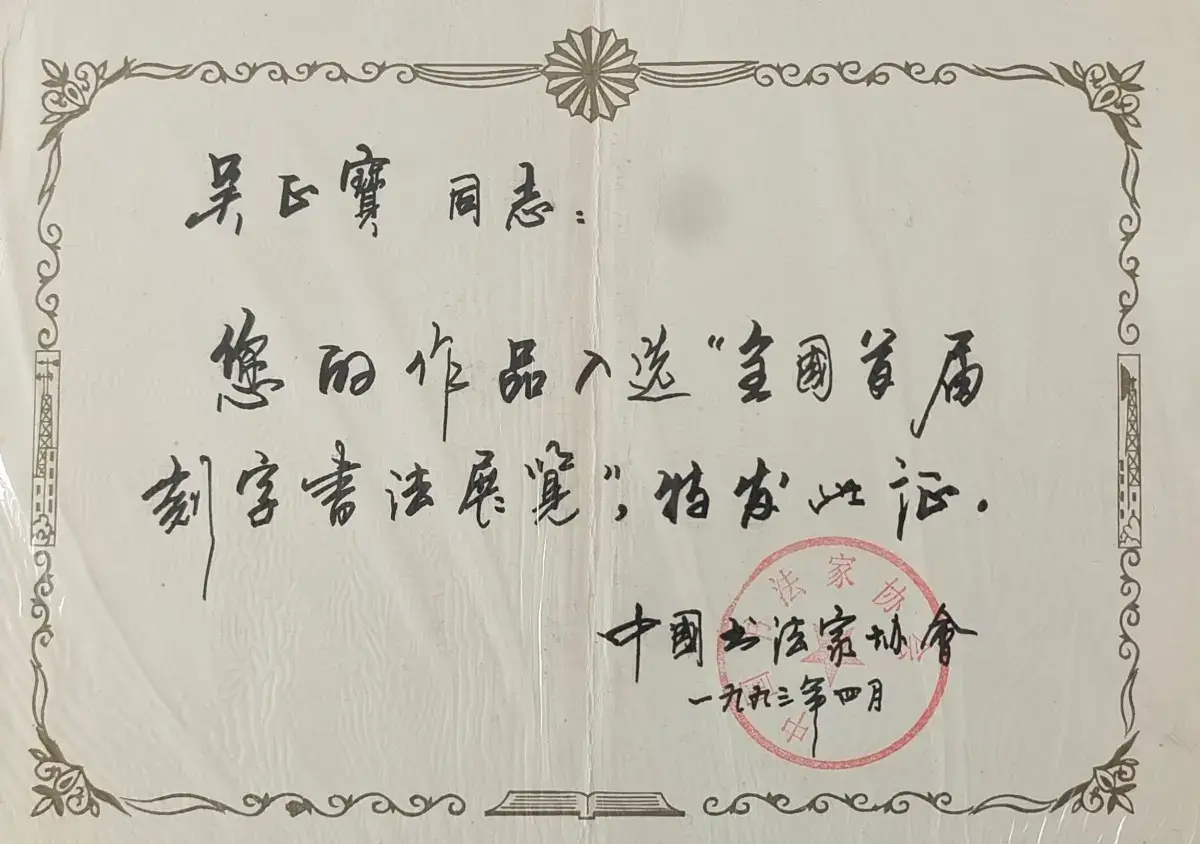 吴正寶 同志：
您的作品入选“全國首届
刻字書法展覽”，特发此证.
中國书法家协會
一九九三年四月
中国书法家协会